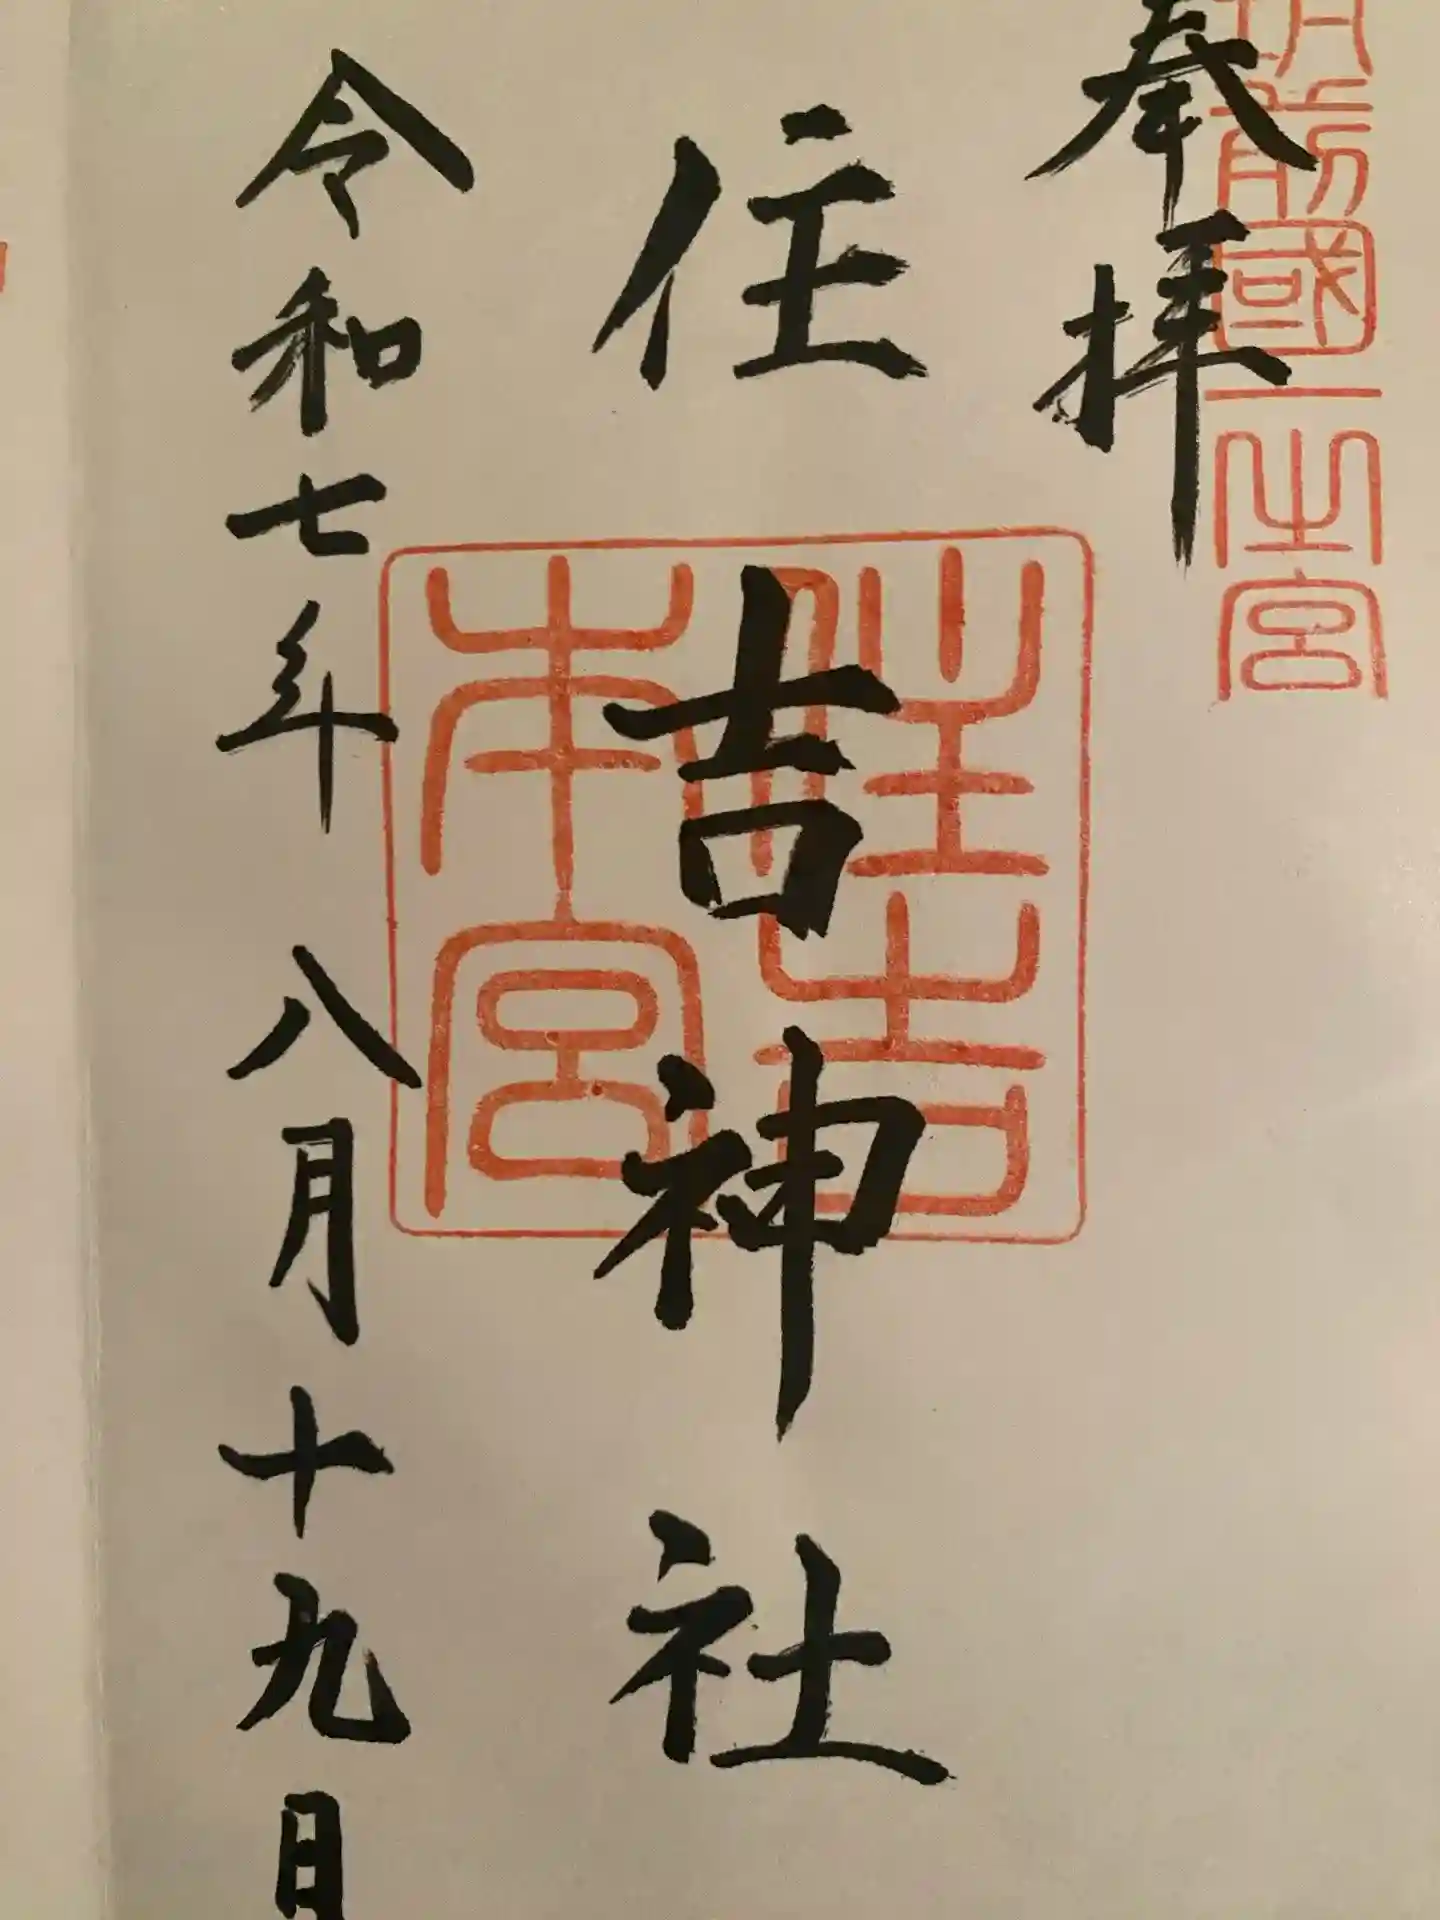 奉拝
筑前國一之宮
住吉神社
住吉本宮
令和七年八月十九日